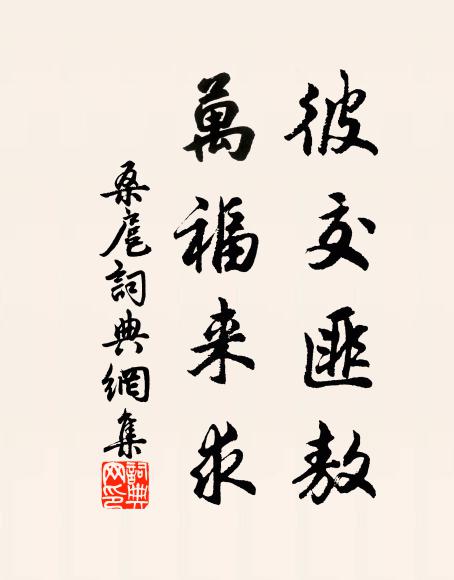 彼交匪敖
萬福来求
桑扈詞典網集
詞典网印